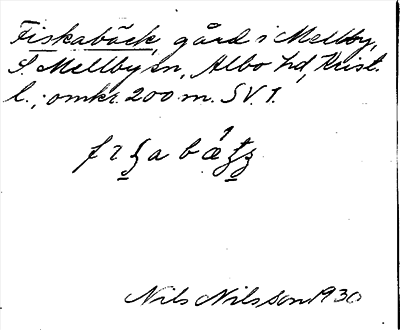 Fiskabäck, gård i Mellby,
S. Mellby sn, Albo hd, Krist.
l.; omkr. 200 m. SV. 1.
Nils Nilsson 1930